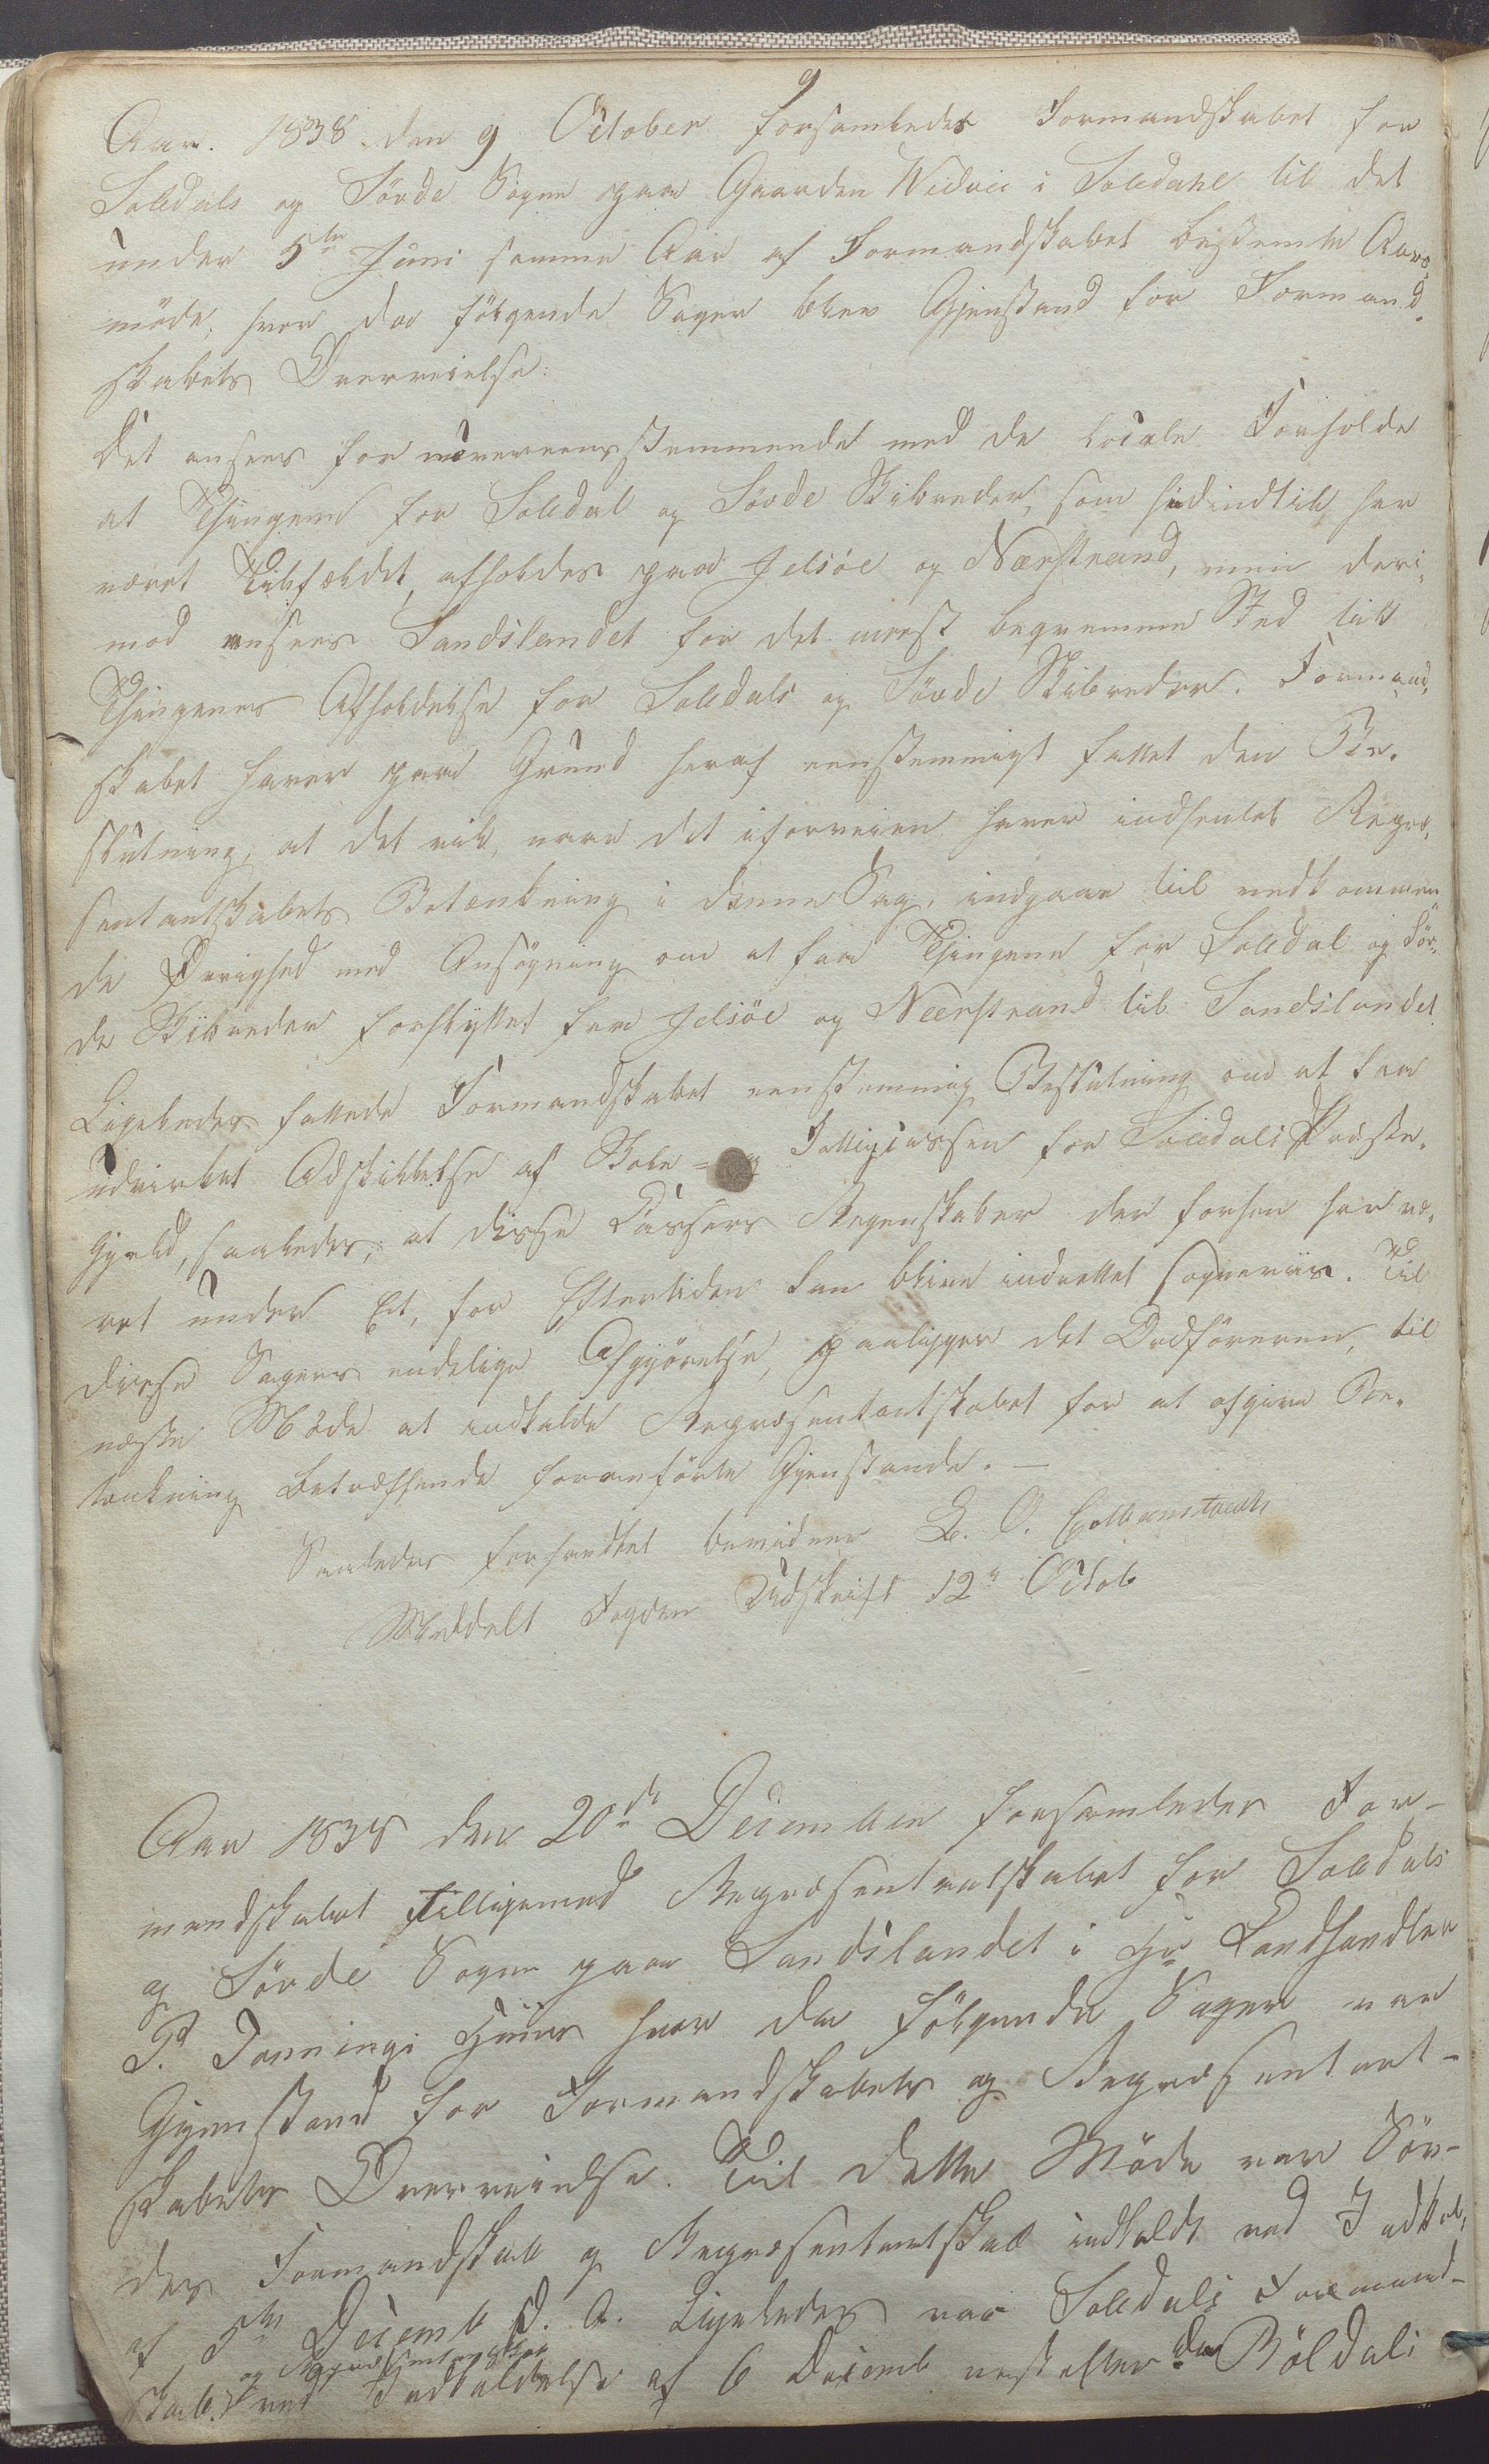 9
Aar. 1838. den 9 October forsamledes Formandskabet for
Suledals og Sövde Sogne paa Gaarden Widvei i Suledahl til det
under 5te Juni samme Aar af Formandskabet bestemte Aars-
möde, hvor da fölgende Sager blev Gjenstand for Formand-
skabets Overveielse:
Det ansees for uovereensstemmende med de locale Forholde
at Thingene for Suledal og Sövde Skibreder, som hidindtil har
været Tilfældet, afholdes paa Jelsöe og Nærstrand, men der i-
mod ansees Sandslandet for det meest beqvemme Sted till
Thingenes Afholdelse for Suledals og Sövde Skibreder. Formand-
skabet haver paa Grund heraf eenstemmigt fattet den Be-
slutning, at det vil, naar det iforveien haver indhentet Repræ-
sentantskabets Betænkning i denne Sag, indgaae til vedkommen-
de Øvrighed med Ansögning om at faae Thingene for Suledal og Söv-
de Skibreder forflyttet fra Jelsöe og Neerstrand til Sandslandet
Ligeledes fattede Formandskabet eenstemmig Beslutning om at faae
udvirket Adskillelse af Skole- og Fattigcassen for Suledals Præste-
gjeld, saaledes, at disse Cassers Regenskaber der forhen har væ-
ret under Et, for Eftertiden kan blive indrettet sogneviis. Til
disse Sagers endelige Afgjörelse, paaligger det Ordföreren, til
næste Möde at indkalde Repræsentantskabet for at afgive Be-
tænkning betræffende foranförte Gjenstande. —
Saaledes forhandlet bevidner L. O.
Meddelt Fogden Udskrift 12te Octob
Aar 1838 den 20de December forsamledes For-
mandskabet tilligemed Repræsentantskabet for Suledals
og Sövde Sogne paa Sandslandet i Hr Landhandler
P. Dannings Huus hvor da fölgende Sager var
Gjenstand for Formandskabets og Repræsentant-
skabets Overveielse. Til dette Möde var Söv-
des Formandskab og Repræsentantskab indkaldt ved Indkal.
af 5te Decemb d. A. Ligeledes var Suledals Formand-
og Repræsentantskab
skab ved Indkaldelse af 6 Decemb næstefter da Röldals